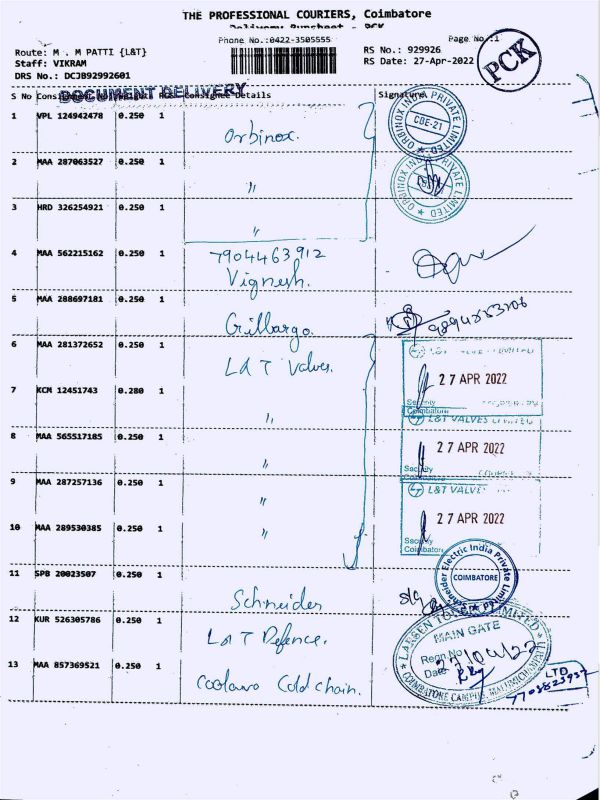 THE PROFESSIONAL COURIERS, Coimbatore
Delivery Runsheet - PCK
Phone No.:0422-3505555
Page No.:1
Route: M . M PATTI {L&T}
RS No.: 929926
Staff: VIKRAM
RS Date: 27-Apr-2022
DRS No.: DCJB92992601
PCK
DOCUMENT DELIVERY
S No Consignee Details Signature
1 VPL 124942478 0.250 1 Orbinox.
ORBINOX INDIA PRIVATE LIMITED
CBE-21
2 MAA 287063527 0.250 1 "
ORBINOX INDIA PRIVATE LIMITED
3 HRD 326254921 0.250 1 "
4 MAA 562215162 0.250 1 7904463912
Vignesh.
5 MAA 288697181 0.250 1
6 MAA 281372652 0.250 1 L&T Valves.
27 APR 2022
Security
Coimbatore
7 KCM 12451743 0.280 1 "
L&T VALVES LIMITED
8 MAA 565517185 0.250 1 "
27 APR 2022
Security
9 MAA 287257136 0.250 1 "
L&T VALVES
10 MAA 289530385 0.250 1 "
27 APR 2022
Security
Coimbatore
11 SPB 20023507 0.250 1 Schneider
Schneider Electric India Private Limited
COIMBATORE
12 KUR 526305786 0.250 1 L&T Defence.
LARSEN & TOUBRO LIMITED
MAIN GATE
Regn No
Date 27/04/22
COIMBATORE CAMPUS, MALUMICHAMPATTI
13 MAA 857369521 0.250 1 Coldchain.
LTD